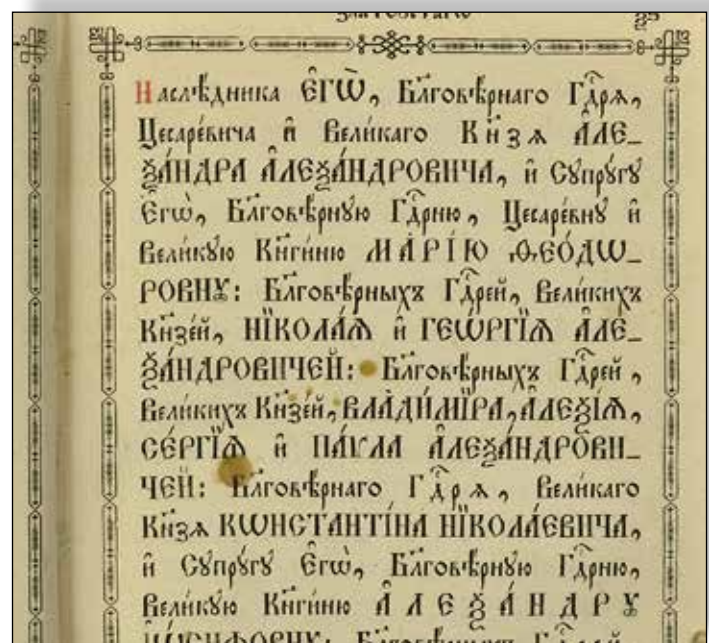 Наслѣ́дника Є҆гѡ̀, Бл҃говѣ́рнаго Гдⷭ҇рѧ,
Цесаре́вича и҆ Вели́каго Кнѧ҃зѧ А҆ЛЕ_
ѮА́НДРА А҆ЛЕѮА́НДРОВИЧА, и҆ Сꙋпрꙋ́гꙋ
Є҆гѡ̀, Бл҃говѣ́рнꙋю Гдⷭ҇рню, Цесаре́внꙋ и҆
Вели́кꙋю Кнги҃ню МАРІ́Ю ѲЕО́ДѠ_
РОВНꙊ: Бл҃говѣ́рныхъ Гдⷭ҇рей, Вели́кихъ
Кнзе҃й, НІКОЛА́Ѧ и҆ ГЕѠ́РГІѦ А҆ЛЕ_
ѮА́НДРОВИЧЕЙ: Бл҃говѣ́рныхъ Гдⷭ҇рей,
Вели́кихъ Кнзе҃й, ВЛАДИ́МІРА, А҆ЛЕѮІ́Ѧ,
СЕ́РГІѦ и҆ ПА́ѴЛА А҆ЛЕѮА́НДРОВИ_
ЧЕЙ: Бл҃говѣ́рнаго Гдⷭ҇рѧ, Вели́каго
Кнзѧ҃ КѠНСТАНТІ́НА НІКОЛА́ЕВИЧА,
и҆ Сꙋпрꙋ́гꙋ Є҆гѡ̀, Бл҃говѣ́рнꙋю Гдⷭ҇рню,
Вели́кꙋю Кнги҃ню А҆ЛЕѮА́НДРꙊ